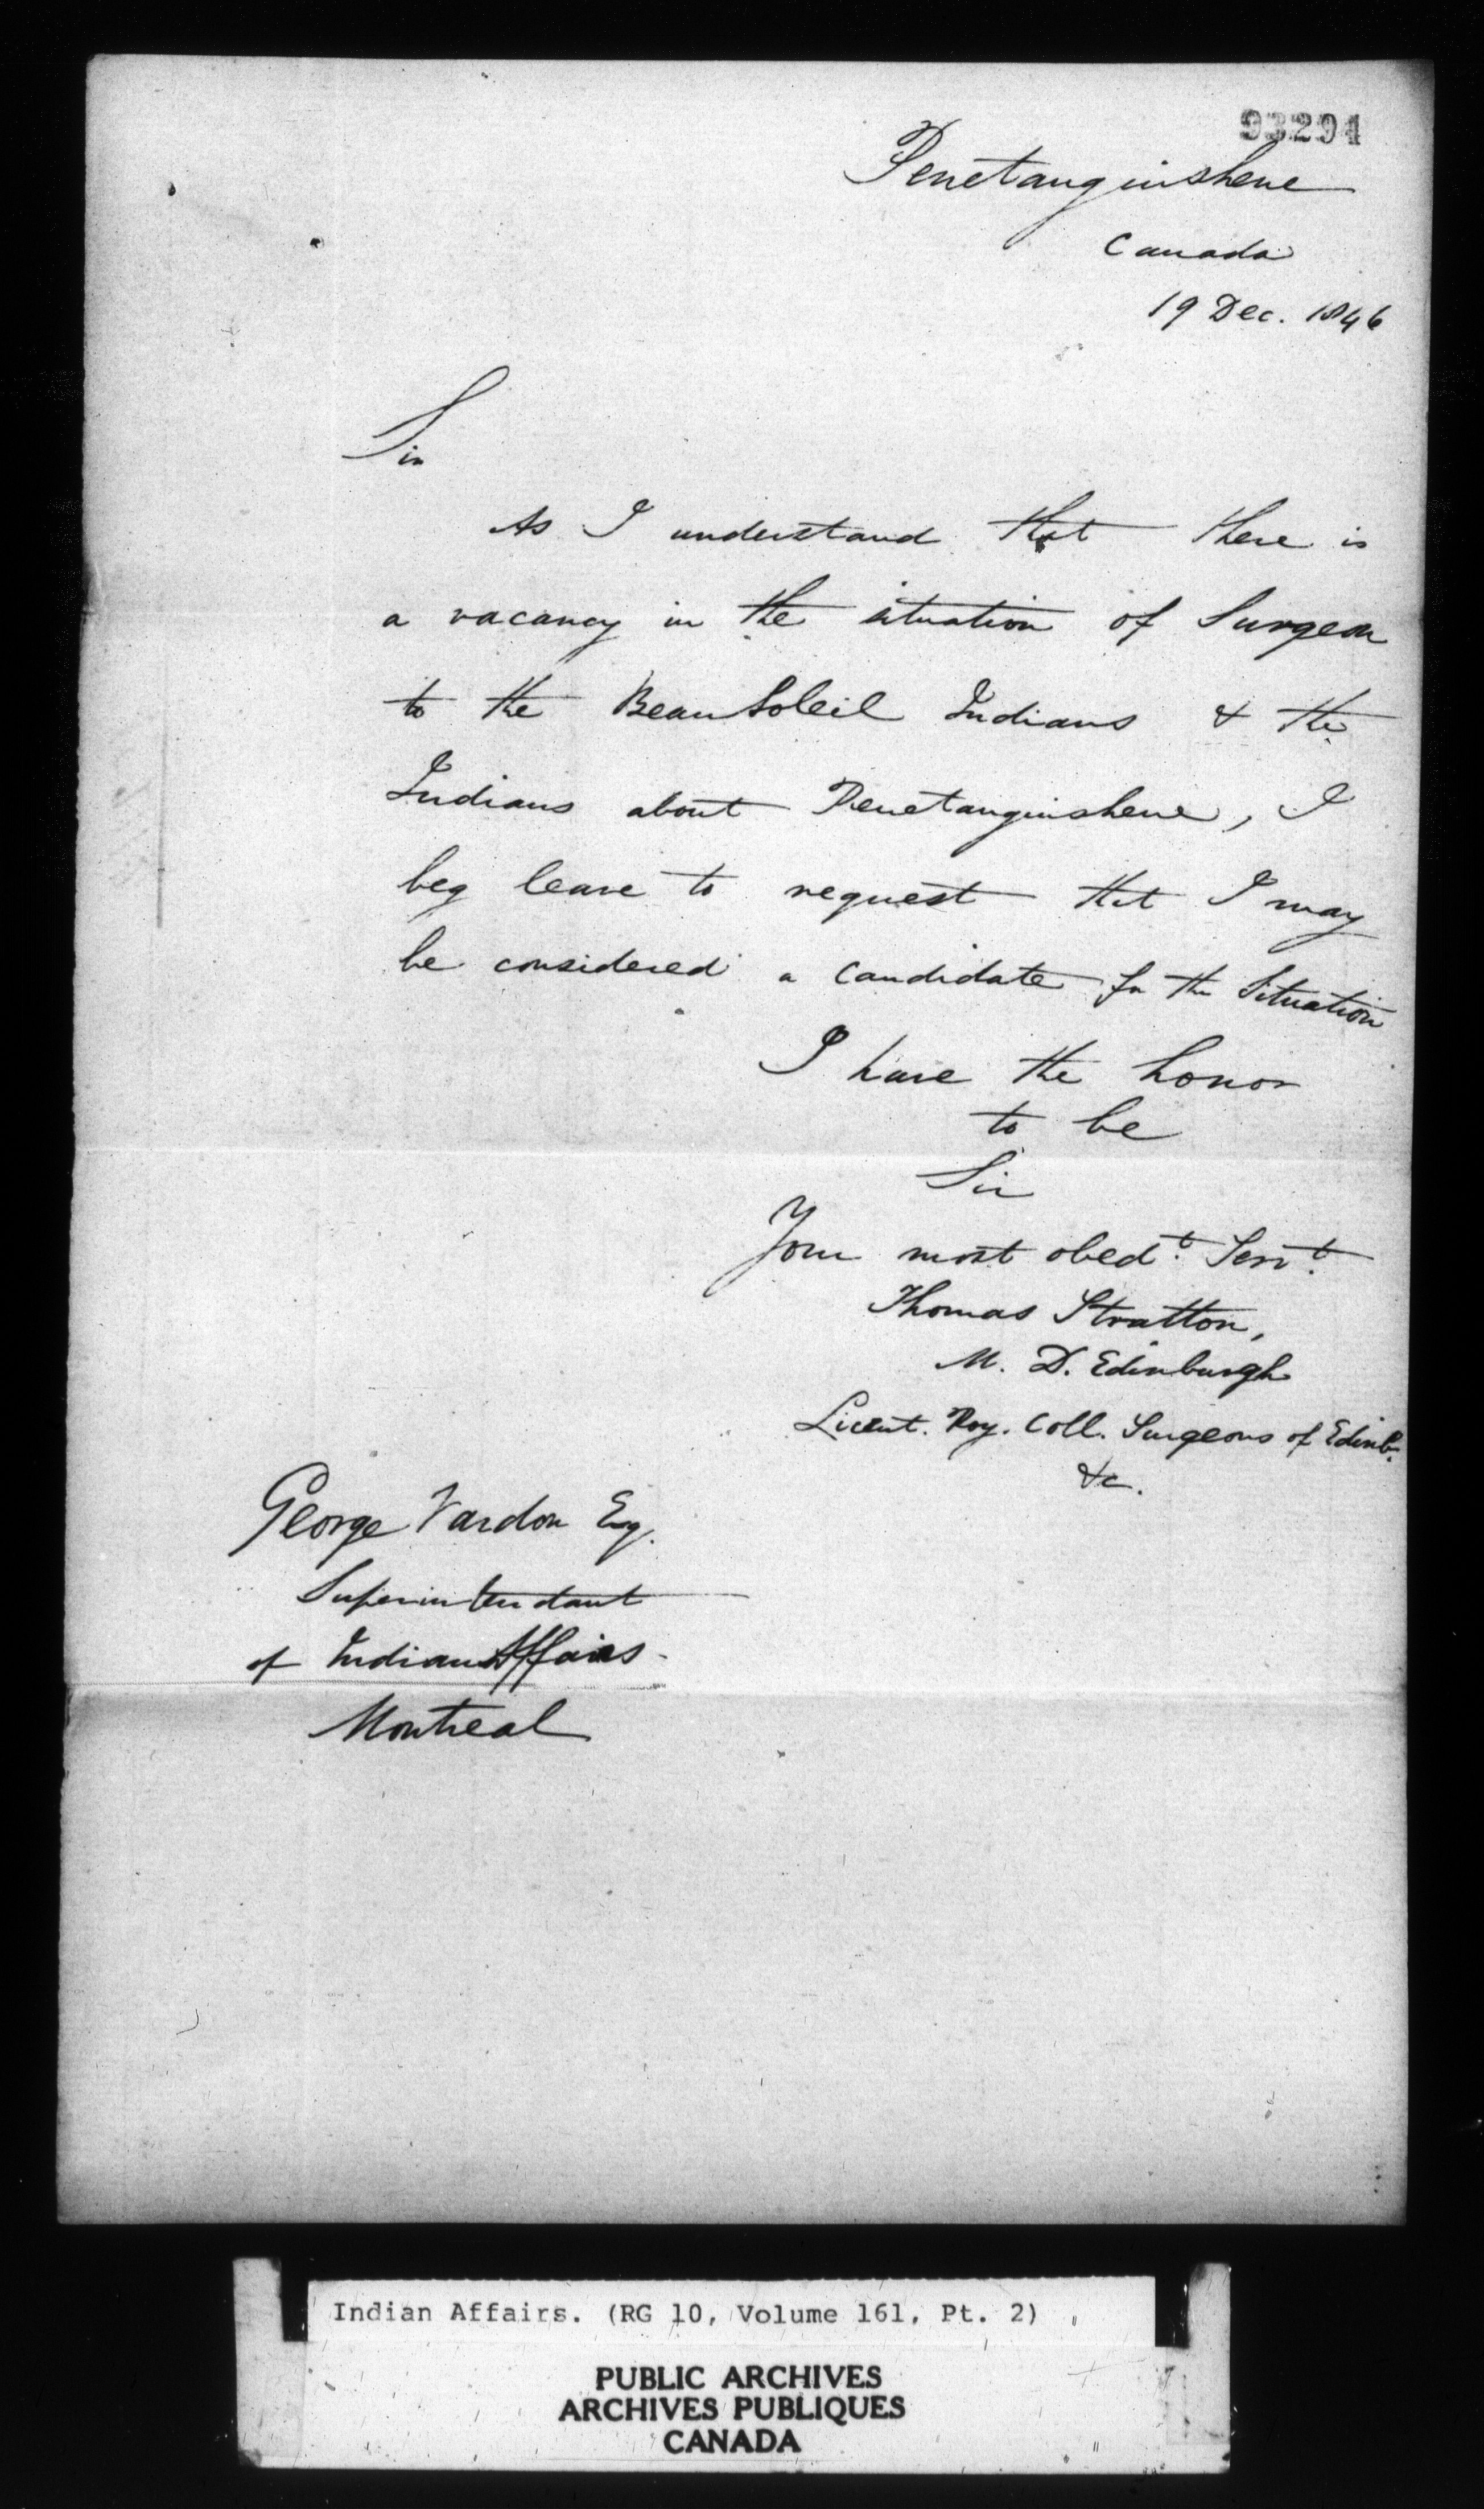 93291
Penetanguishene
Canada
19 Dec. 1846
Sir
As I understand that there is
a vacancy in the situation of Surgeon
to the Beausoleil Indians & the
Indians about Penetanguishene, I
beg leave to request that I may
be considered a candidate for the situation
I have the honor
to be
Sir
Your most obedt. Servt.
Thomas Stratton,
M. D. Edinburgh
Licent. Roy. Coll. Surgeons of Edinb.
&c.
George Vardon Esq.
Superintendant
of Indian Affairs
Montreal
Indian Affairs. (RG 10, Volume 161, Pt. 2)
PUBLIC ARCHIVES
ARCHIVES PUBLIQUES
CANADA